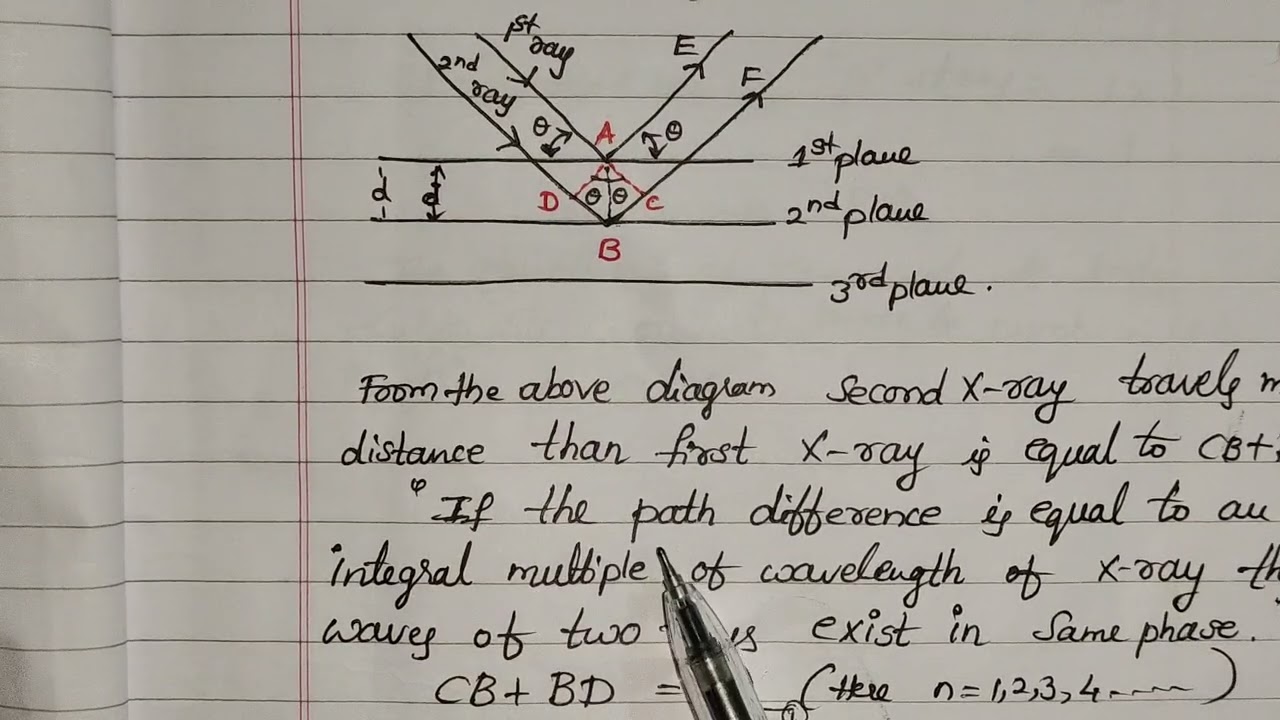 1st ray
E
2nd ray
F
θ
A
θ
1st plane
d
d
D
θ
θ
C
2nd plane
B
3rd plane.
From the above diagram second X-ray travels
distance than first X-ray is equal to CB+
If the path difference is equal to an
integral multiple of wavelength of X-ray
waves of two exist in same phase.
CB + BD = (Here n = 1,2,3,4.----)